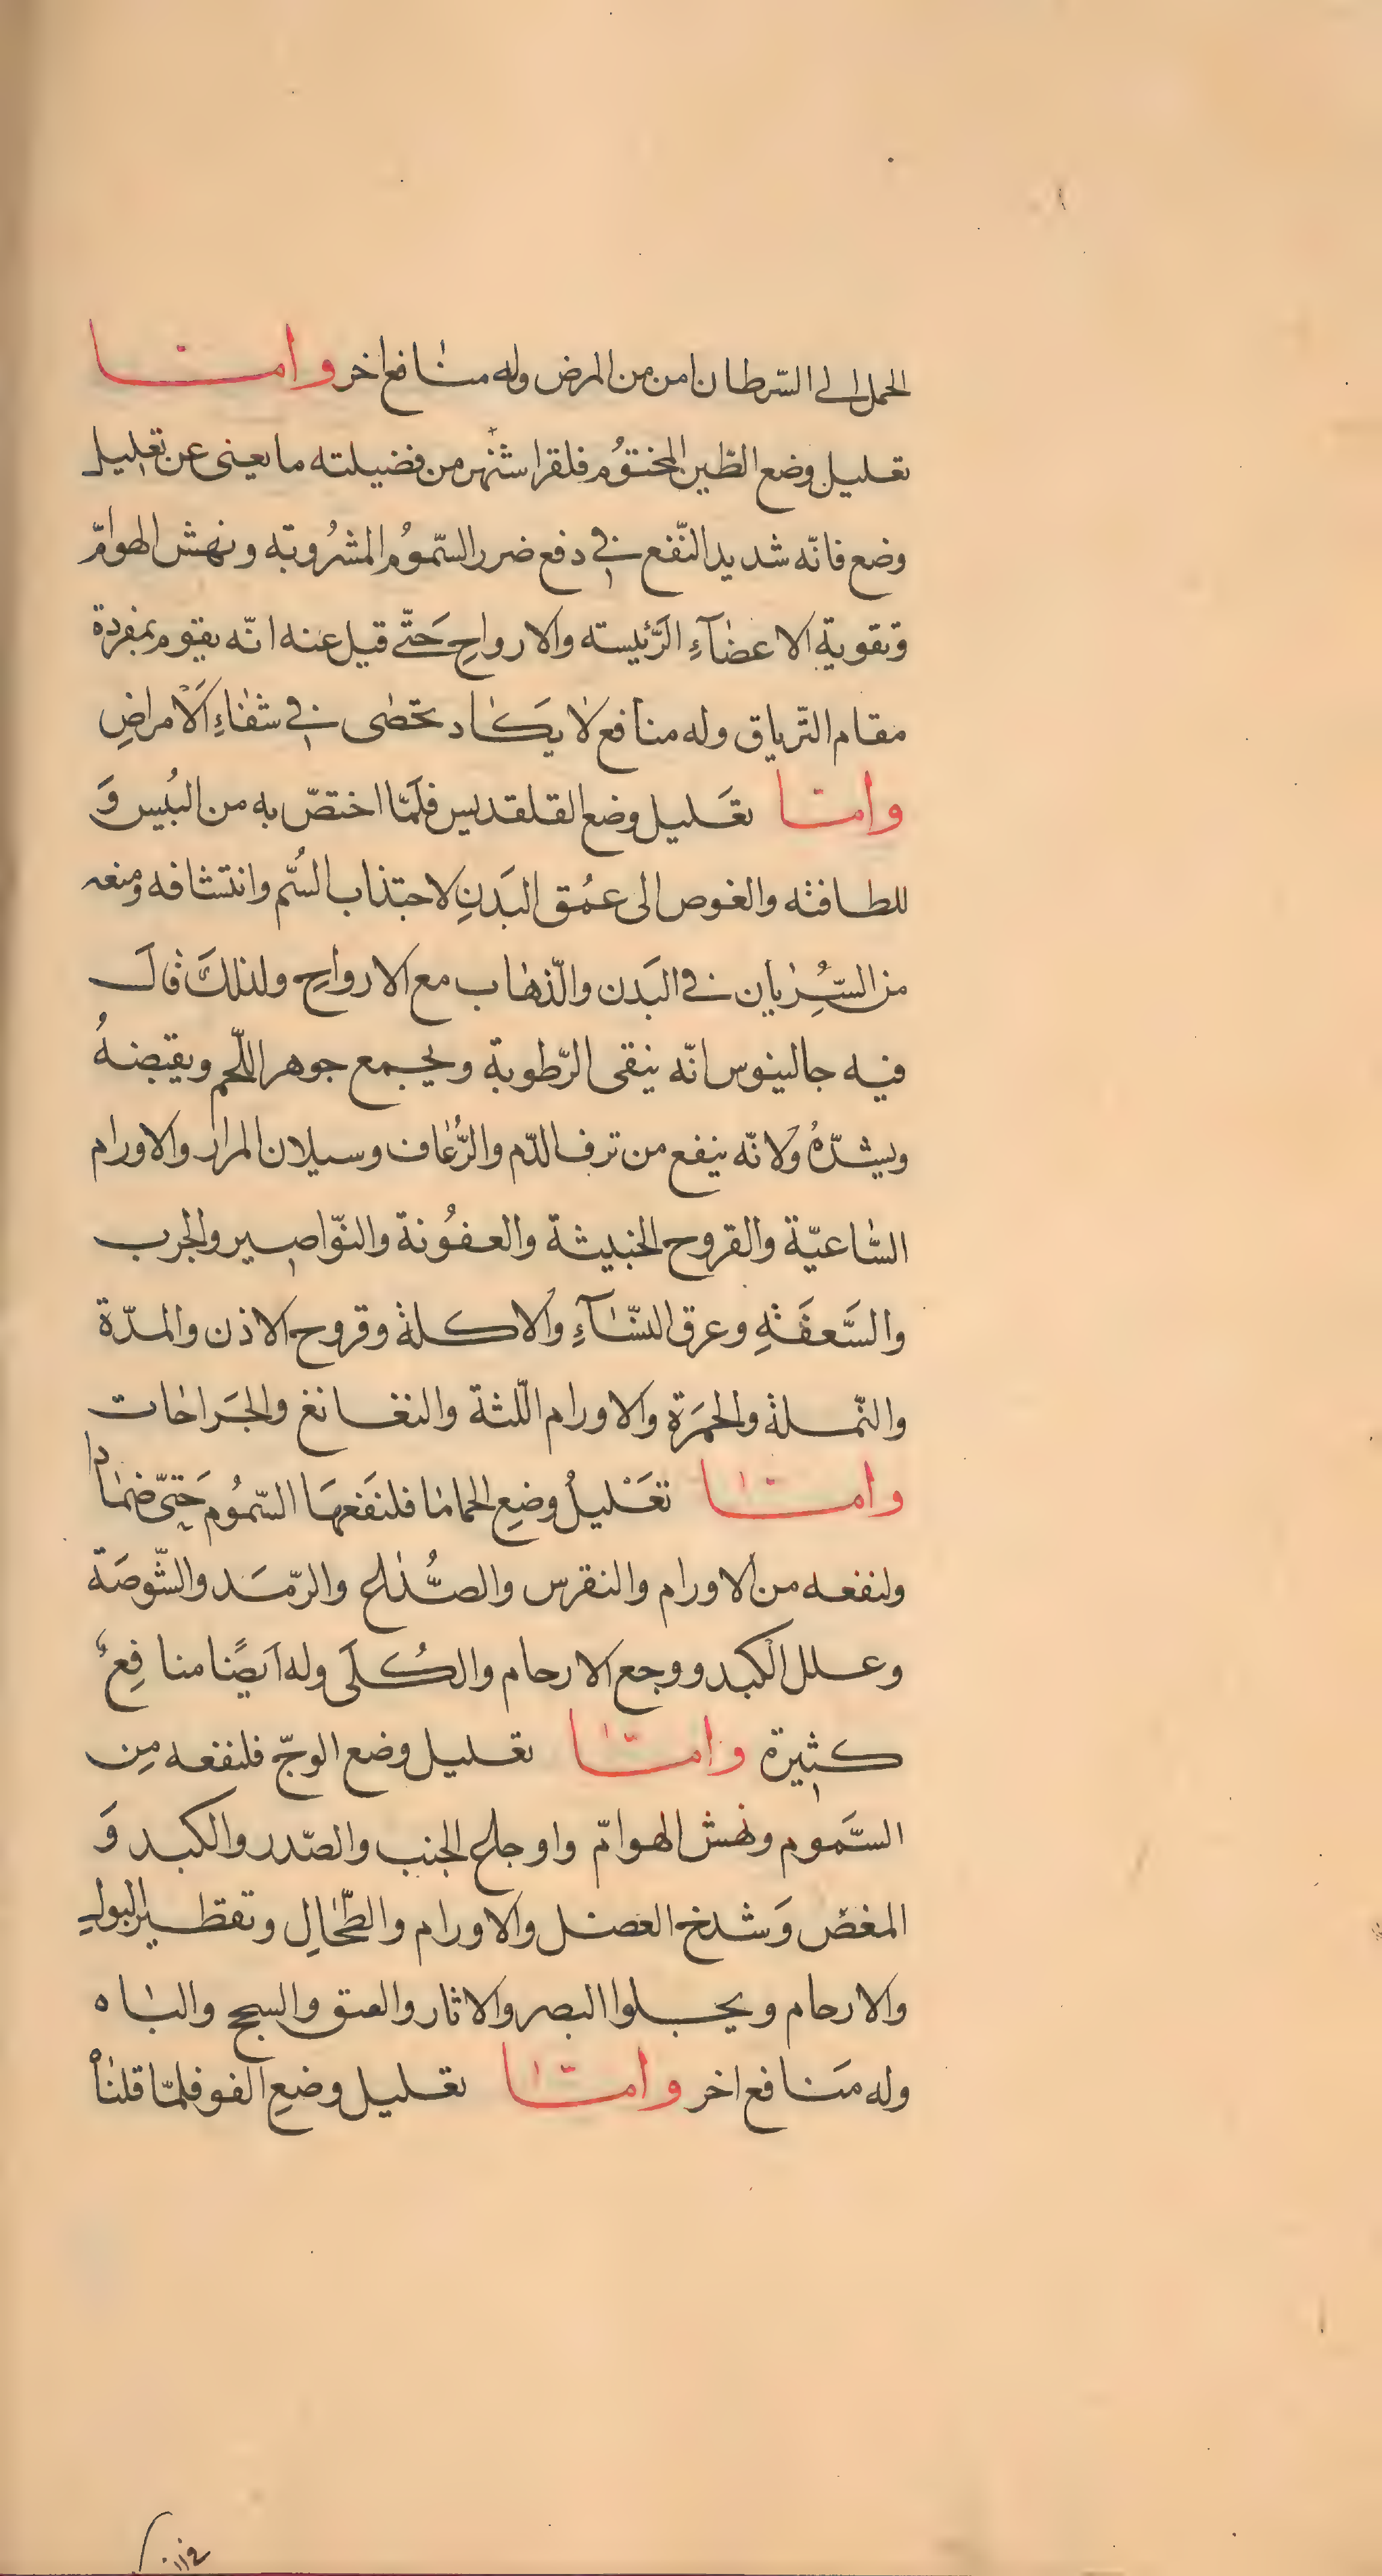 الحمل الى السّرطان امن من المرض وله منافع اخر وامّا
تعليل وضع الطّين المختوُم فلقد اشتهر من فضيلته ما يغنى عن تعليل
وضع فانّه شديد النّفع فى دفع ضرر السّموُم المشرُوبة ونهش الهوامّ
وتقوية الاعضآءِ الرّئيسته والارواحِ حَتّى قيل عنه انّه يقوم بمفردة
مقام التّرياق وله منافع لا يكاد تحصى فى شفاءِ الامراضِ
وامّا تعَليل وضع القلقديس فلَمّا اختصّ به من اليُبس وَ
للطافته والغوص الى عمُق البَدنِ لاجتذاب السُّم وانتشافه ومنعه
من السِّريان فى البَدن والذّهاب مع الارواحِ ولذلكَ قالَ
فيه جالينوس انّه ينقى الرّطوبة ويجمع جوهر اللّحم ويقبضهُ
ويشدّهُ ولانّه ينفع من نزف الدّم والرُّعاف وسيلان المرار والاورام
السّاعيّة والقروح الخبيثة والعفوُنة والنّواصير والجرب
والسَّعفَةِ وعرق النسّآءِ والاكلة وقروح الاذن والمدّة
والنّملة والحمَرة والاورام اللّثة والنغانغ والجَراحات
وامّا تعَليلُ وضعِ الحماما فلنَفعهَا السّموُم حَتّى ضمادا
ولنفعه من الاورام والنقرس والصُّداع والرّمَد والشّوصَة
وعلل الكبد ووجع الارحام والكُلَى وله اَيضًا منافِعٌ
كثيرة وامّا تعليل وضع الوجّ فلنفعه مِن
السَّموم ونهش الهوامّ واوجاع الجنب والصّدر والكبد وَ
المغص وَشدخ العضل والاورام والطّحالِ وتقطير البولِ
والارحام ويجلوا البصر والاثار والعتق والسحج والباه
وله مَنافع اخر وامّا تعليل وضعِ الفو فلمّا قلناْ